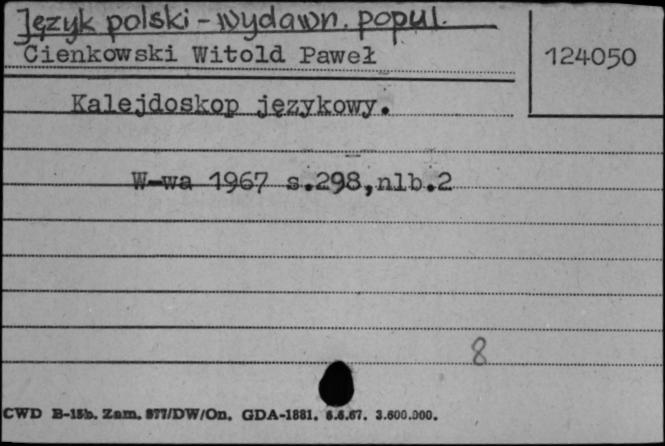 Język polski - wydawn. popul.
Cienkowski Witold Paweł
124050
Kalejdoskop językowy.
W-wa 1967 s.298,nlb.2
8
CWD B-15b. Zam. 877/DW/On. GDA-1881. 6.6.67. 3.600.000.